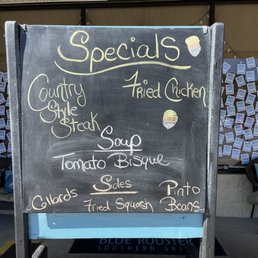 Specials
Country
Style
Steak
Fried Chicken
Soup
Tomato Bisque
Sides
Collards
Fried Squash
Pinto
Beans
BLUE ROOSTER
SOUTHERN GRILL